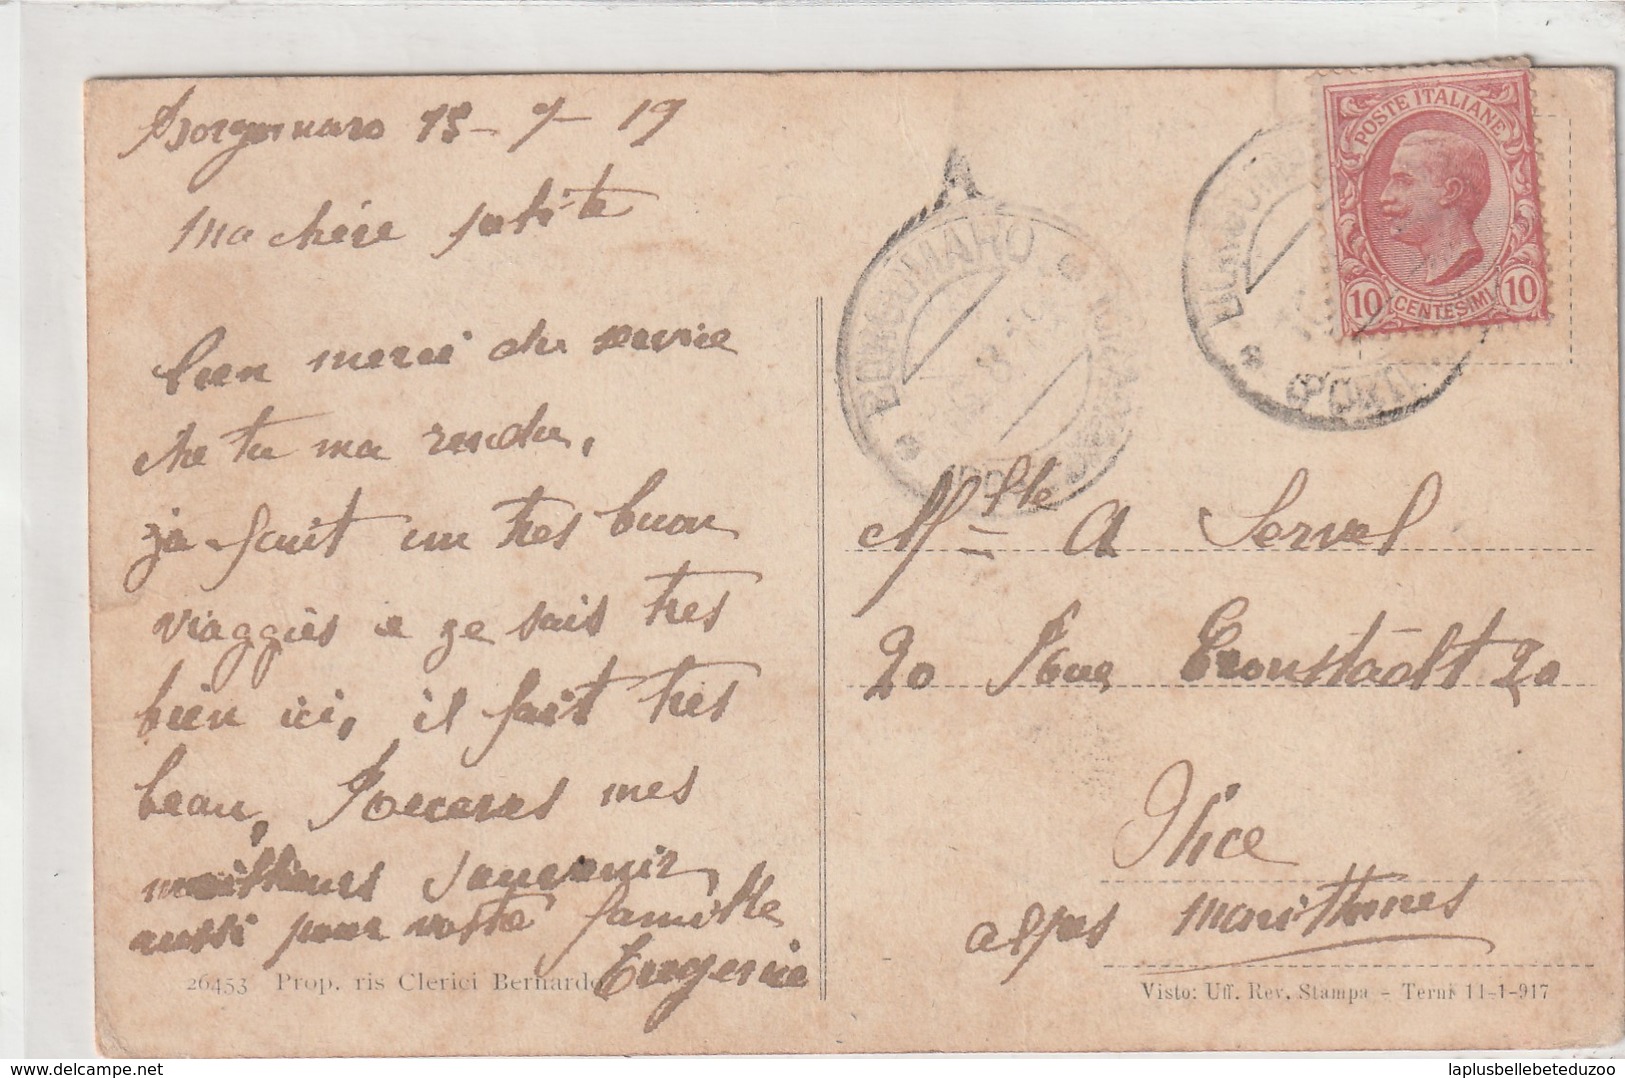 Borgomaro 15-7-19
Ma chére patite
bien merci du service
che tu ma rendu,
ja fait un tres buon
viaggiès e je suis tres
bien ici, il fait tres
beau, Receves mes
meillieurs souvenir
aussi pour vostre famille
Eugenie
26453 Prop. ris Clerici Bernardo
POSTE ITALIANE
10 CENTESIMI 10
BORGOMARO
PORTO
Mlle A Servel
20 Rue Cronstàdt 20
Nice
alpes Marittimes
Visto: Uff. Rev. Stampa - Terni 11-1-917
laplusbellebeteduzoo